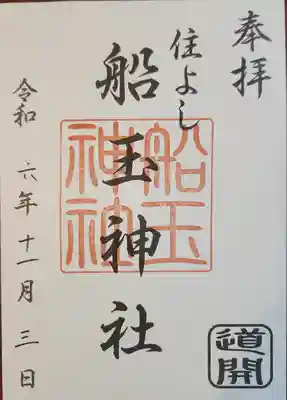 奉拝
住よし
船玉神社
船玉神社
令和 六年 十一月 三日
道開